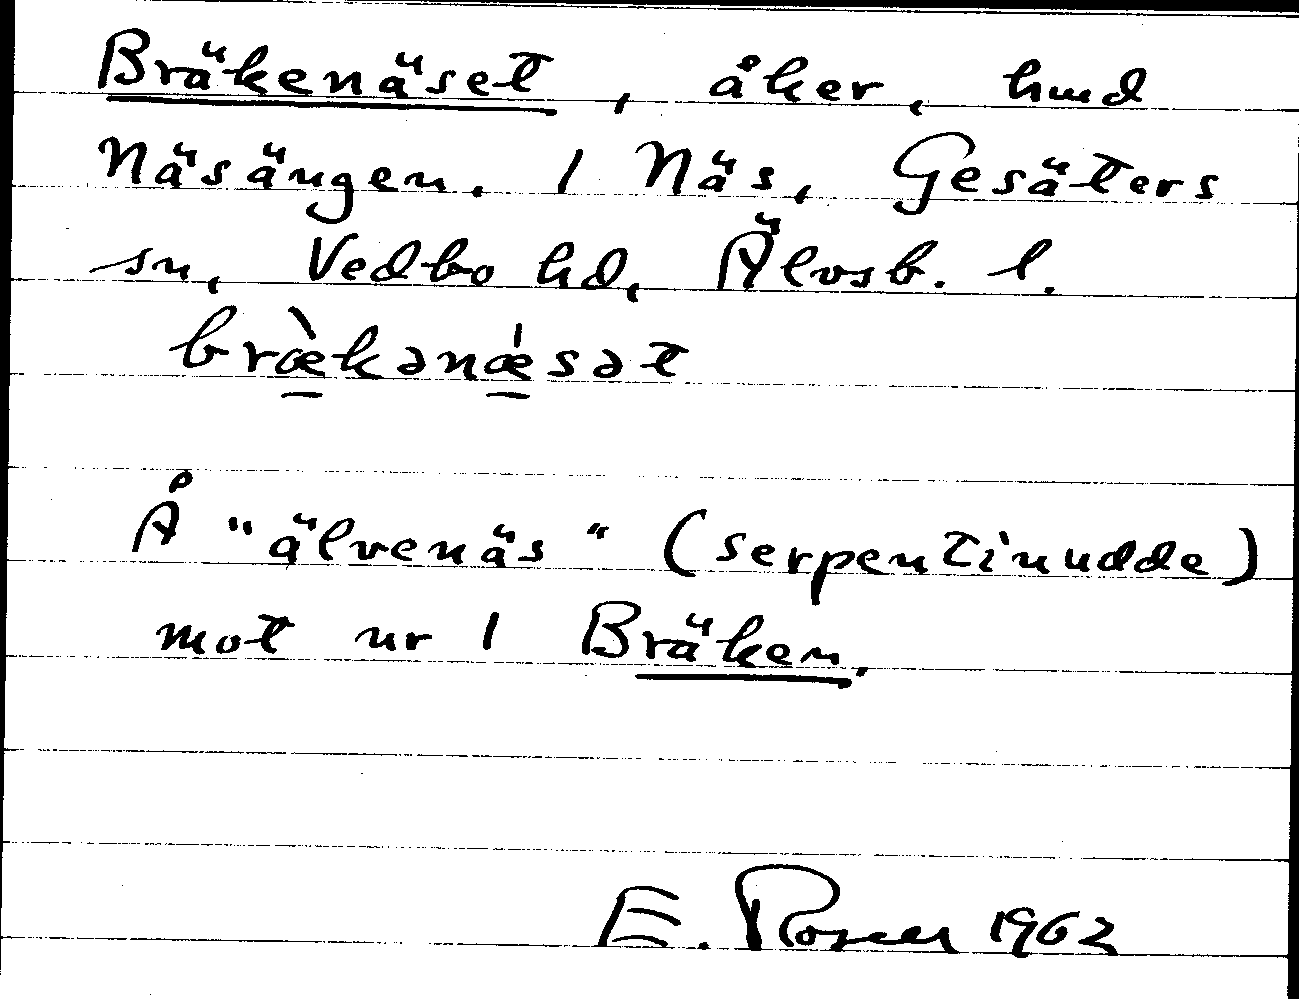 Bräkenäset, åker, hmd
Näsängen. 1 Näs, Gesäters
sn, Vedbo hd, Älvsb. l.
bræ̀kənǽsət
Å "älvenäs" (serpentinudde)
mot nr 1 Bräken.
E. 1962